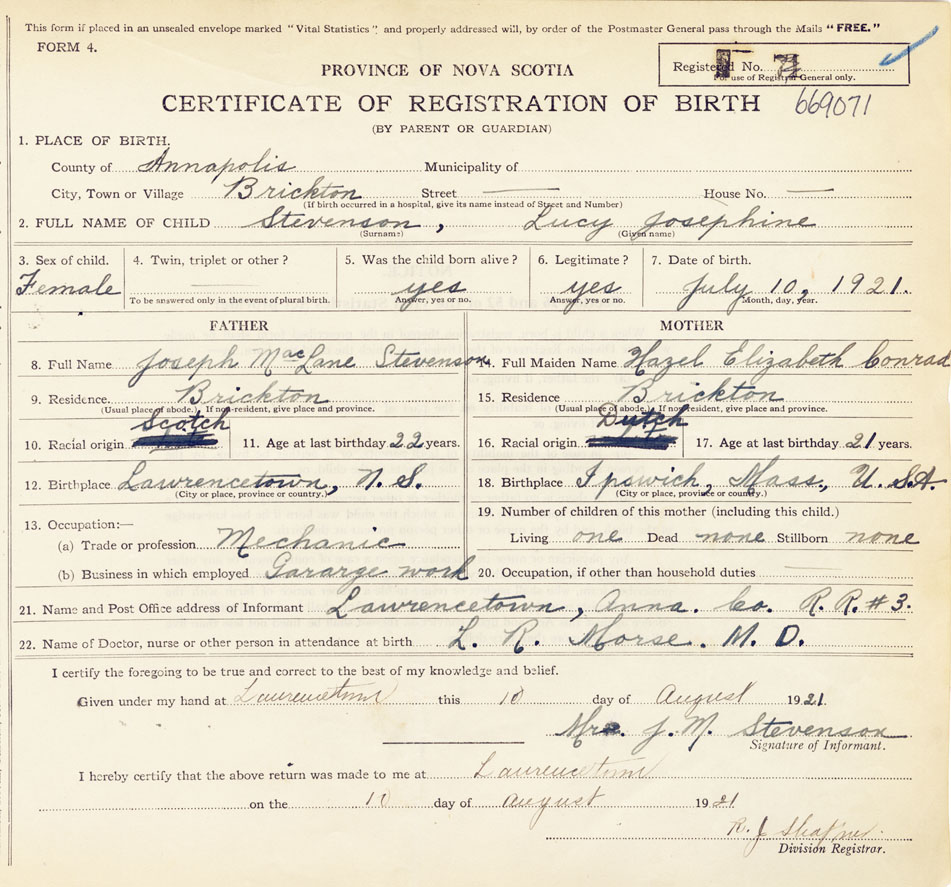 This form if placed in an unsealed envelope marked "Vital Statistics", and properly addressed will, by order of the Postmaster General pass through the Mails "FREE."
FORM 4.
Registered No.
For use of Registrar General only.
PROVINCE OF NOVA SCOTIA
CERTIFICATE OF REGISTRATION OF BIRTH 669071
(BY PARENT OR GUARDIAN)
1. PLACE OF BIRTH.
County of Annapolis Municipality of
City, Town or Village Brickton Street — House No. —
(If birth occurred in a hospital, give its name instead of Street and Number)
2. FULL NAME OF CHILD Stevenson, Lucy Josephine
(Surname) (Given name)
3. Sex of child. 4. Twin, triplet or other? 5. Was the child born alive? 6. Legitimate? 7. Date of birth.
Female — yes yes July 10, 1921.
To be answered only in the event of plural birth. Answer, yes or no. Answer, yes or no. Month, day, year.
FATHER MOTHER
8. Full Name Joseph MacLane Stevenson 14. Full Maiden Name Hazel Elizabeth Conrad
9. Residence. Brickton 15. Residence Brickton
(Usual place of abode.) If non-resident, give place and province. (Usual place of abode.) If non-resident, give place and province.
Scotch Dutch
10. Racial origin 11. Age at last birthday 22 years. 16. Racial origin 17. Age at last birthday 21 years.
12. Birthplace Lawrencetown, N. S. 18. Birthplace Ipswich, Mass., U. S.A.
(City or place, province or country.) (City or place, province or country.)
13. Occupation:— 19. Number of children of this mother (including this child.)
(a) Trade or profession Mechanic Living one Dead none Stillborn none
(b) Business in which employed Gararge work 20. Occupation, if other than household duties —
21. Name and Post Office address of Informant Lawrencetown, Anna. Co. R. R. #3.
22. Name of Doctor, nurse or other person in attendance at birth L. R. Morse. M. D.
I certify the foregoing to be true and correct to the best of my knowledge and belief.
Given under my hand at Lawrencetown this 10 day of August 1921.
Mrs. J. M. Stevenson
Signature of Informant.
I hereby certify that the above return was made to me at Lawrencetown
on the 10 day of August 1921
R. J. Shafner.
Division Registrar.